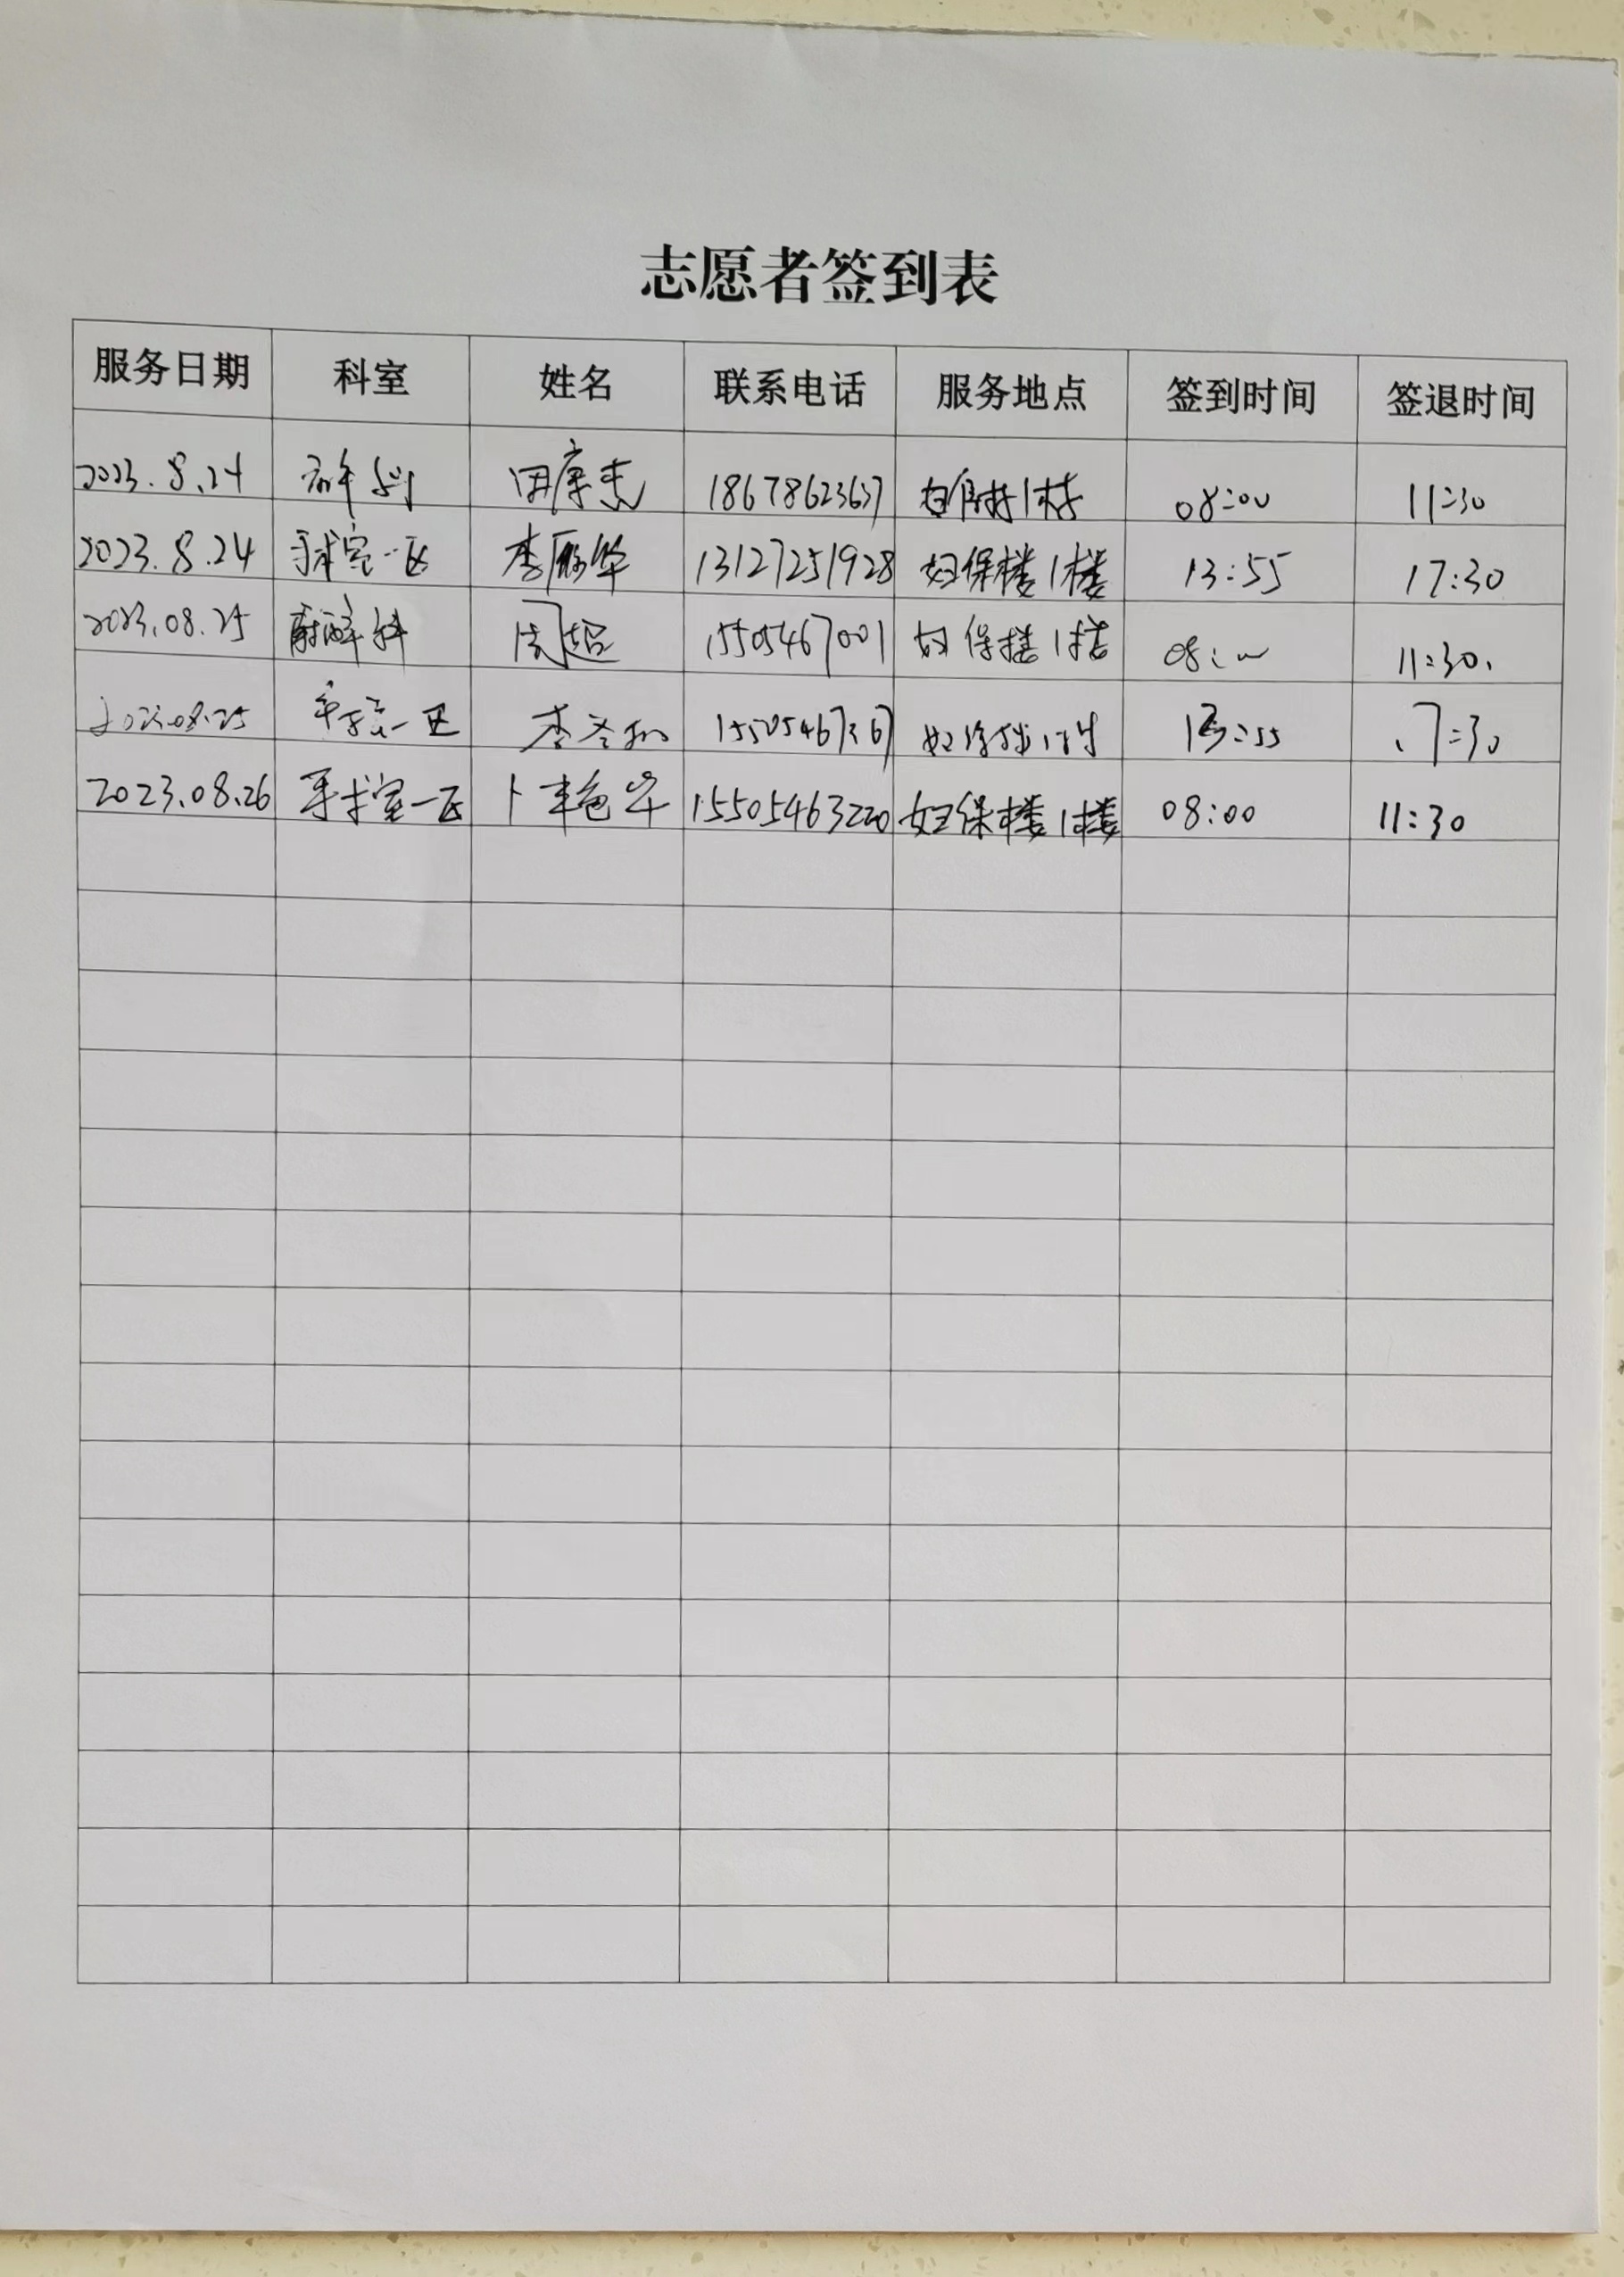 志愿者签到表
服务日期 科室 姓名 联系电话 服务地点 签到时间 签退时间
2023.8.24 田康志 18678623637 1楼 08:00 11:30
2023.8.24 手术室一区 李 华 13127251928 妇保楼1楼 13:55 17:30
2023.08.25 麻醉科 周超 15505467001 妇保楼1楼 08: 11:30.
2023.08.25 手术室一区 李 妇保楼1楼 13:55 17:30
2023.08.26 手术室一区 卜 15505463220 妇保楼1楼 08:00 11:30